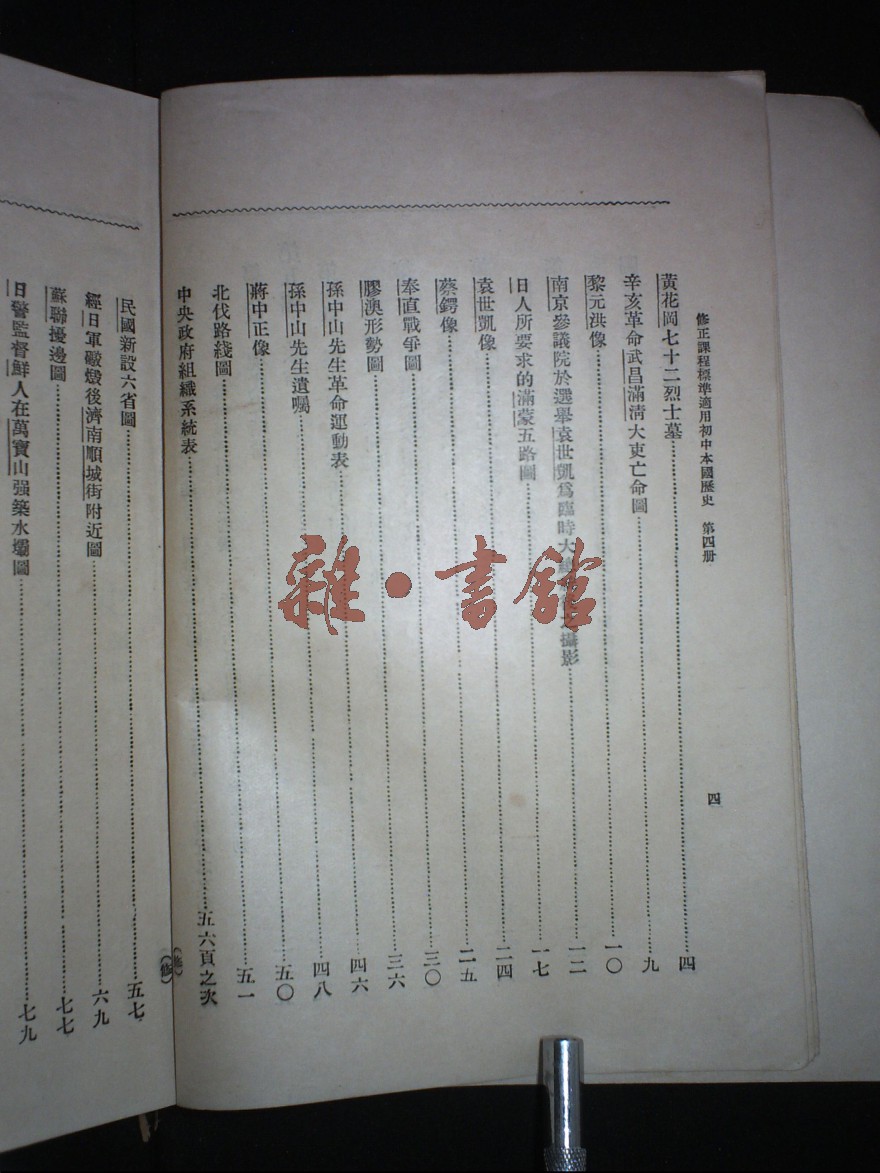 修正課程標準適用初中本國歷史 第四册
四
黃花岡七十二烈士墓 四
辛亥革命武昌滿清大吏亡命圖 九
黎元洪像 一〇
南京參議院於選舉袁世凱爲臨時大 攝影 一二
日人所要求的滿蒙五路圖 一七
袁世凱像 二四
蔡鍔像 二五
奉直戰爭圖 三〇
膠澳形勢圖 三六
孫中山先生革命運動表 四六
孫中山先生遺囑 四八
蔣中正像 五〇
北伐路綫圖 五一
中央政府組織系統表 五六頁之次
(修)
(修)
民國新設六省圖 五七
經日軍礮燬後濟南順城街附近圖 六九
蘇聯擾邊圖 七七
日警監督鮮人在萬寶山强築水壩圖 七九
雜·書館